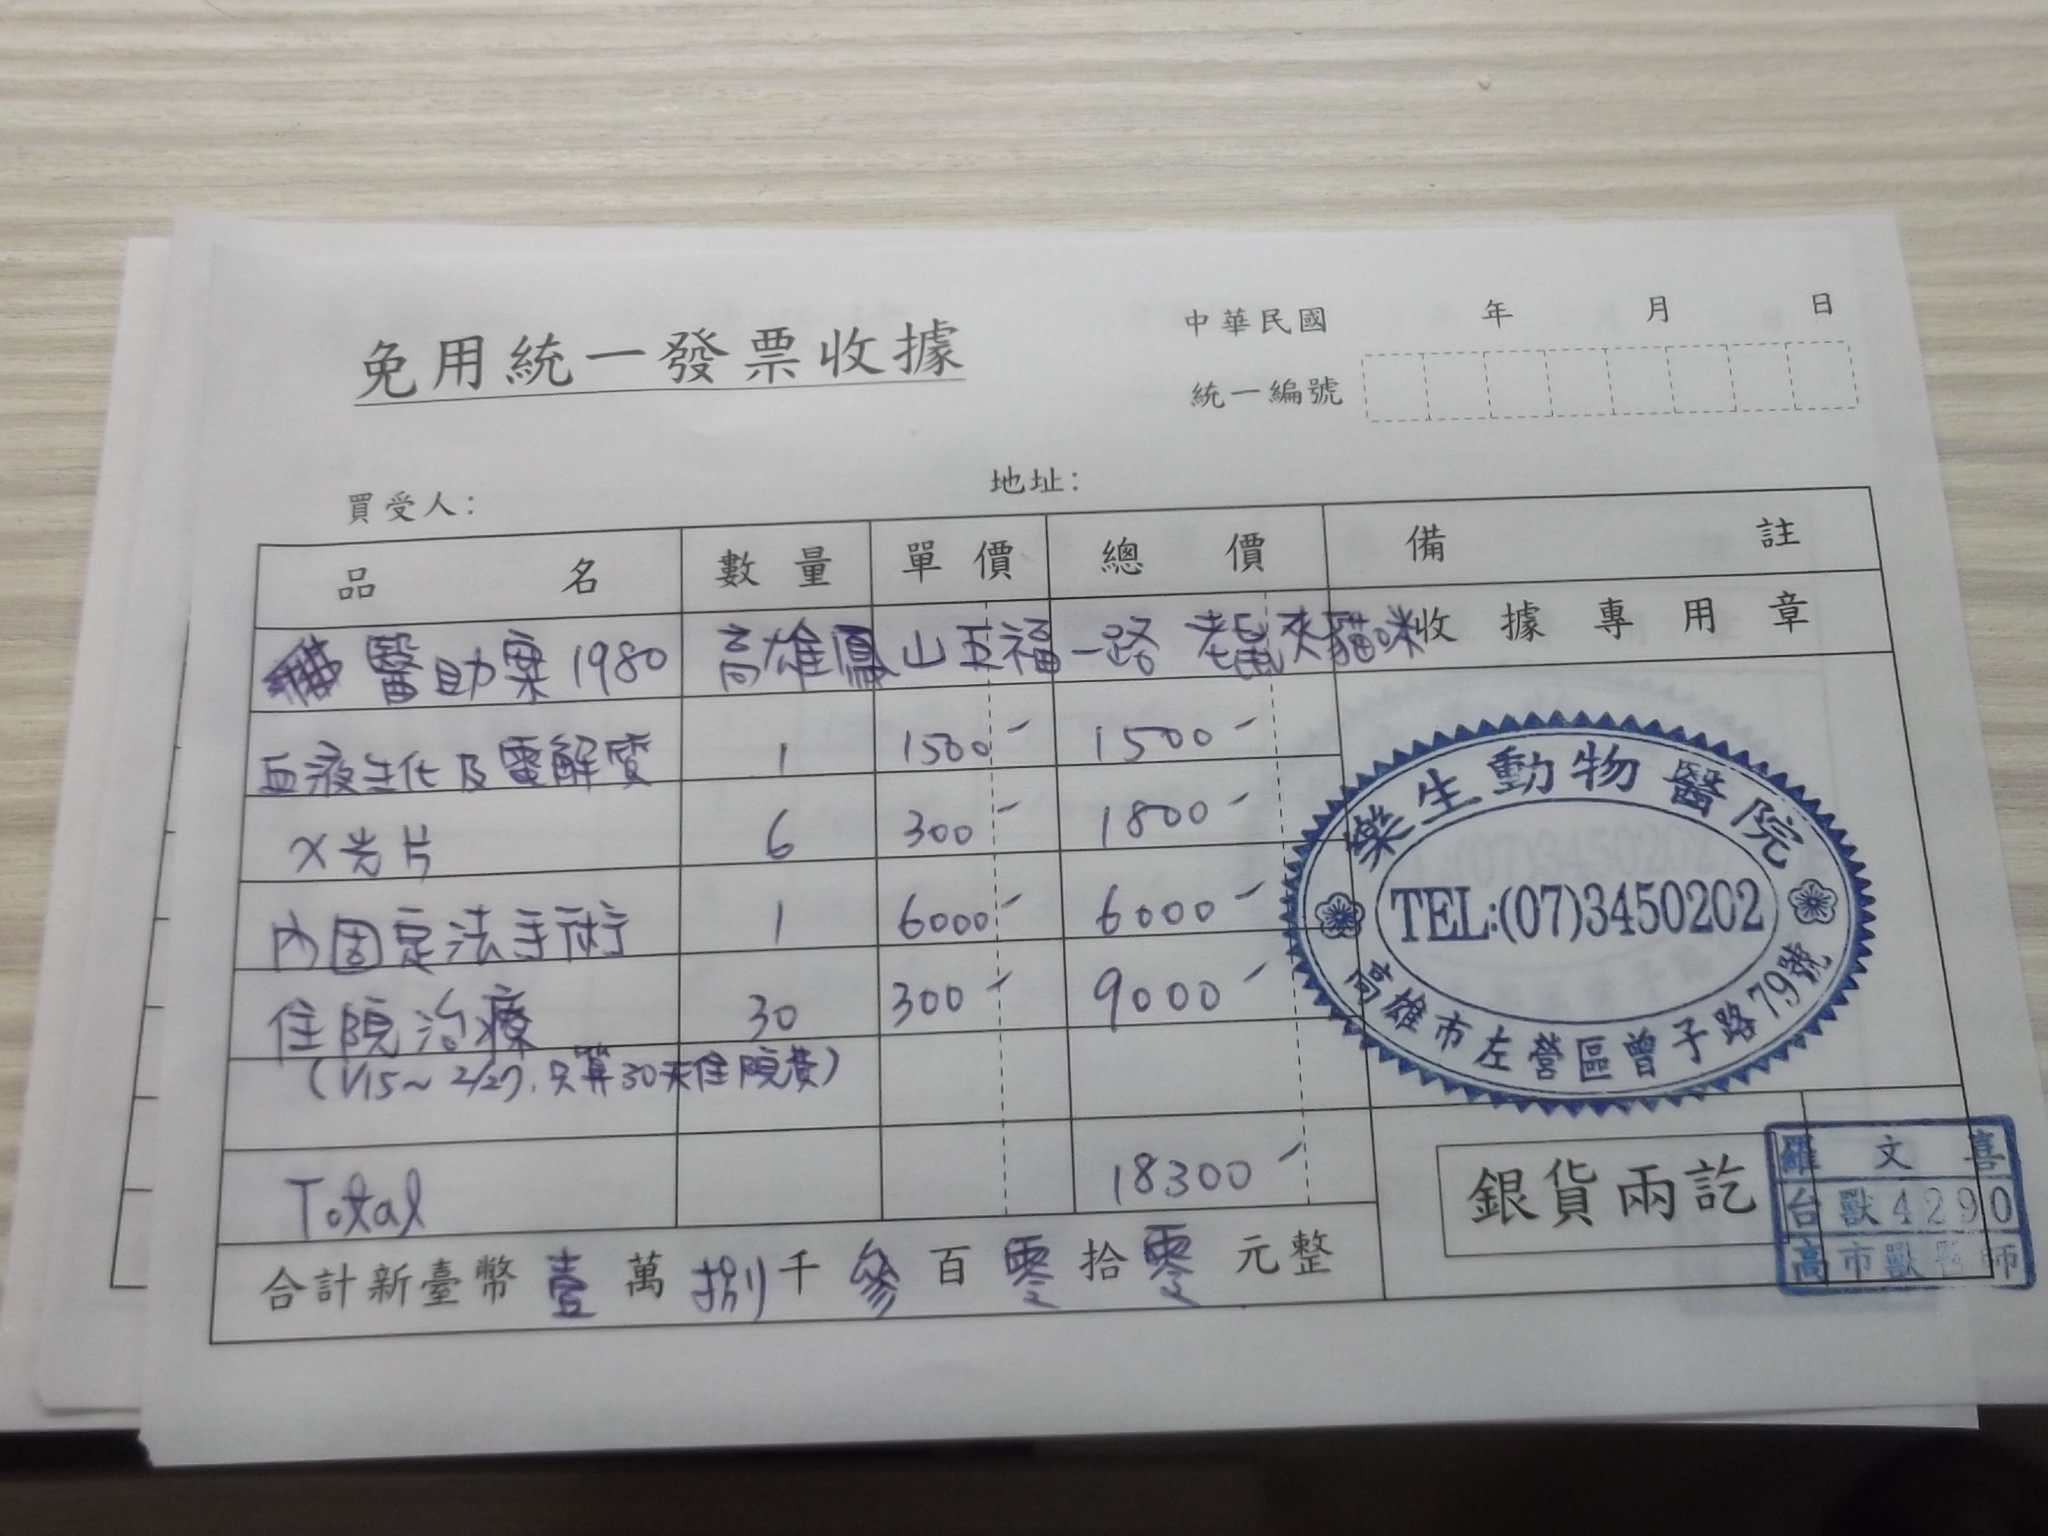 免用統一發票收據
中華民國 年 月 日
統一編號
買受人: 地址:
品名 數量 單價 總價 備註
醫助案1980 高雄鳳山五福一路 老鼠夾貓咪 收據專用章
血液生化及電解質 1 1500 1500
X光片 6 300 1800
內固定法手術 1 6000 6000
住院治療 30 300 9000
(1/15~2/27,只算30天住院費)
Total 18300
合計新臺幣壹萬捌千參百零拾零元整
樂生動物醫院
TEL:(07)3450202
高雄市左營區曾子路79號
銀貨兩訖
羅文喜
台獸4290
高市獸醫師